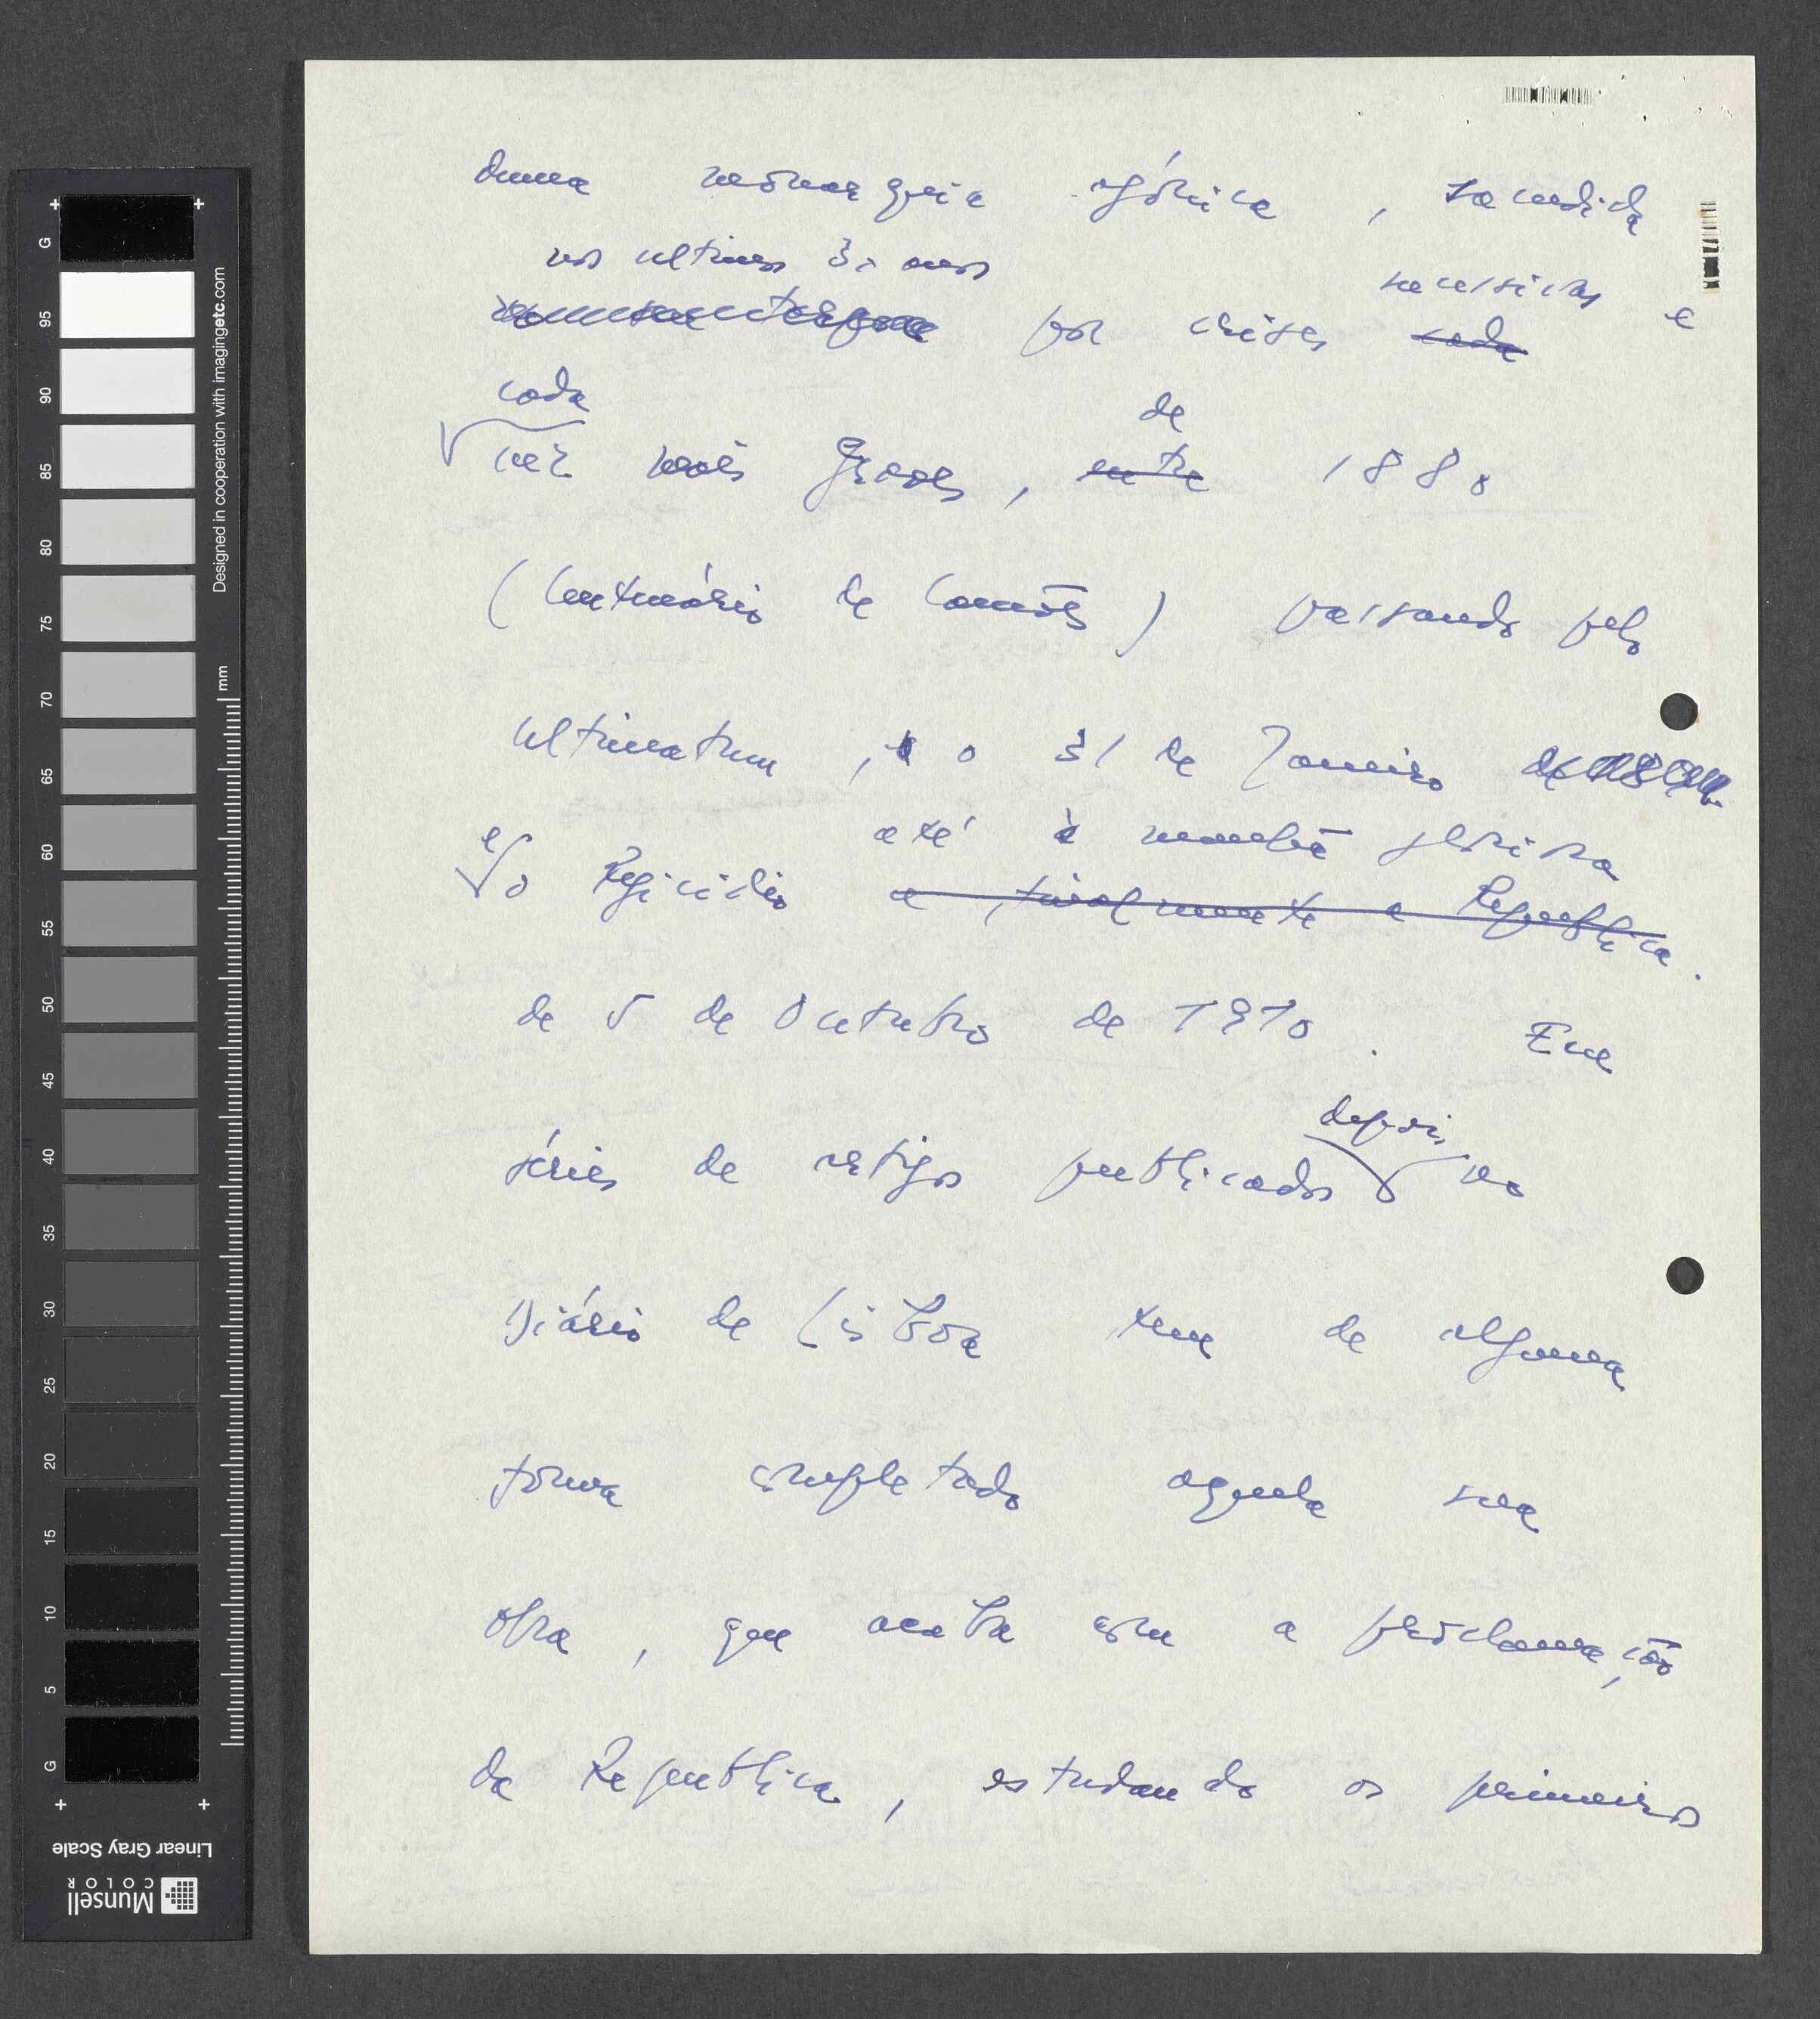 duma monarquia agónica, sacudida
nos ultimos 30 anos
sucessivas e
por crises cada
cada
de
vez mais graves, entre 1880
(Centenário de Camões) passando pelo
Ultimatum, o 31 de Janeiro
até à manhã gloriosa
e o Regicidio e finalmente a Republica.
de 5 de Outubro de 1910. Em
depois
séries de artigos publicados no
Diário de Lisboa tem de alguma
forma completado aquela sua
obra, que acaba com a proclamação
da Republica, estudando os primeiros
G
95
90
85
80
75
70
65
60
55
50
45
40
35
30
25
20
15
10
5
G
mm
Designed in cooperation with imagingetc.com
Linear Gray Scale
Munsell
COLOR